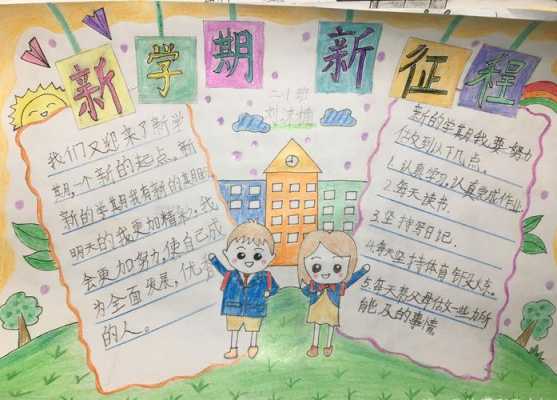 新学期新征程
二小班
我们又迎来了新学
期,一个新的起点。新
新的学期我有新的期
明天的我更加精彩。我
会更加努力,使自己成
为全面发展,优秀
的人。
新的学期我要努力
做到以下几点。
1.认真学习,认真完成作业
2.每天读书.
3.坚持写日记.
4.每天坚持体育锻炼.
5.每天帮父母做一些力所
能及的事情